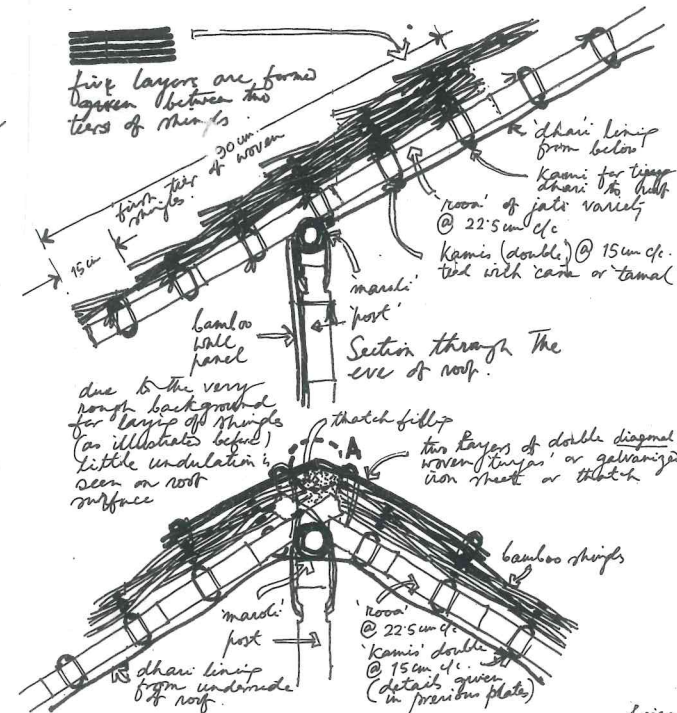 five layers are formed
given between two
tiers of shingls
90cm
first tier of woven
shingles.
15cm
'dhari lining
from below
Kami for tieing
dhari to roof
'rooa' of jati variety
@ 22.5cm c/c
Kamis (double) @ 15cm c/c.
tied with cane or tamal
'maroli'
'post'
bamboo
wall
panel
Section through The
eve of roof.
due to the very
rough background
for laying of shingles
(as illustrated before)
little undulation is
seen on roof
surface
thatch filling
A
two layers of double diagonal
woven 'turjas' or galvanized
iron sheet or thatch
bamboo shingls
'maroli'
post
'rooa'
@ 22.5cm c/c
'Kamis' double
@ 15cm c/c.
(details given
in previous plates)
dhari lining
from underside
of roof.